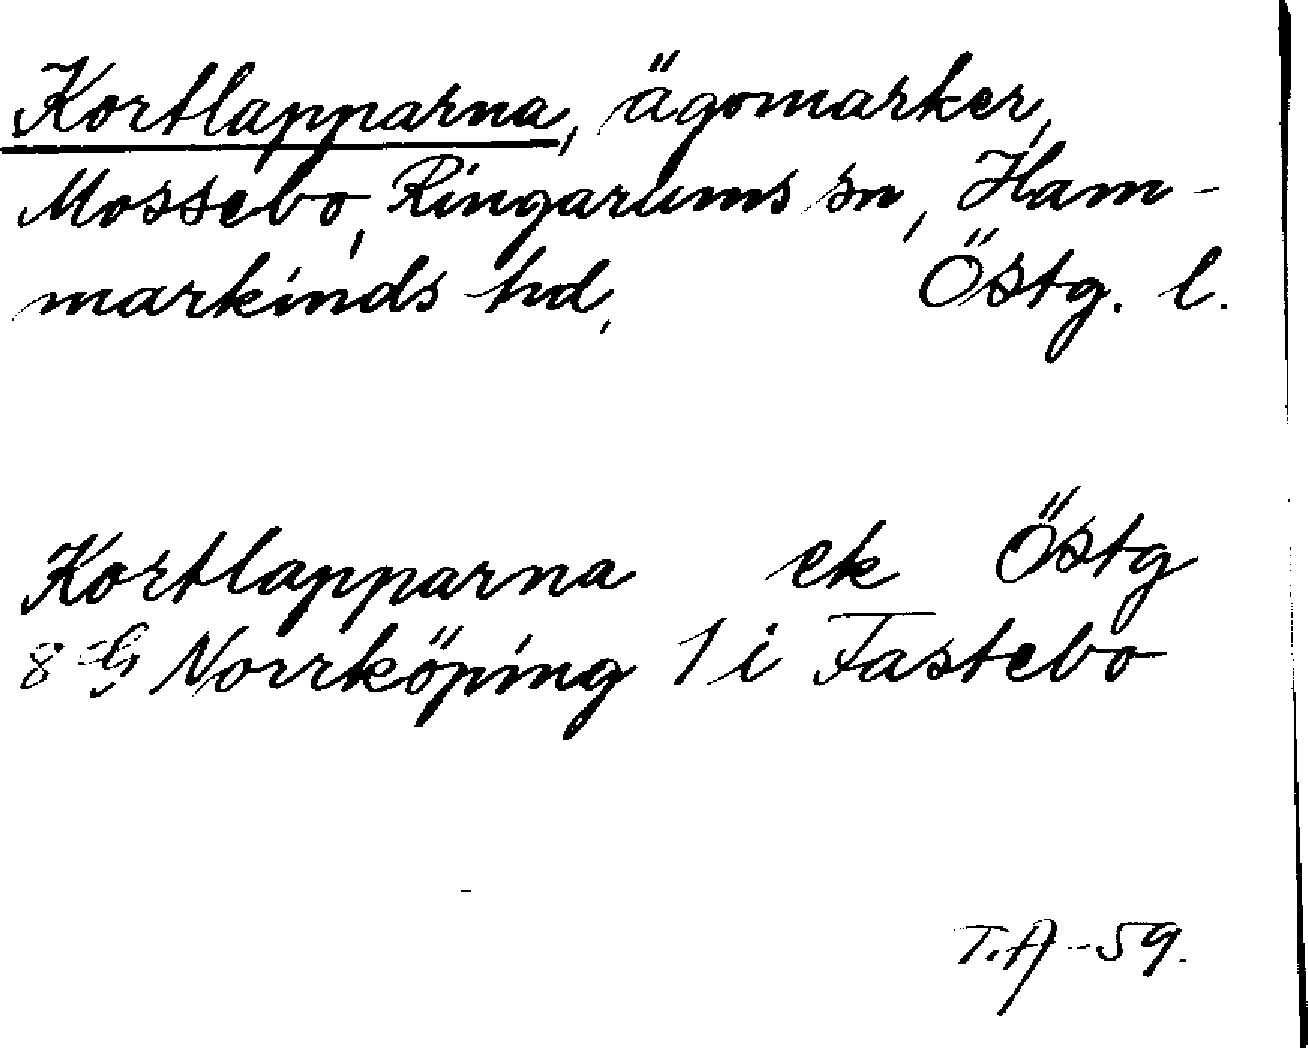 Kortlapparna, ägomarker,
Mossebo, Ringarums sn, Ham-
markinds hd, Östg. l.
Kortlapparna ek Östg
8 G Norrköping 1 i Fastebo
T.A-59.